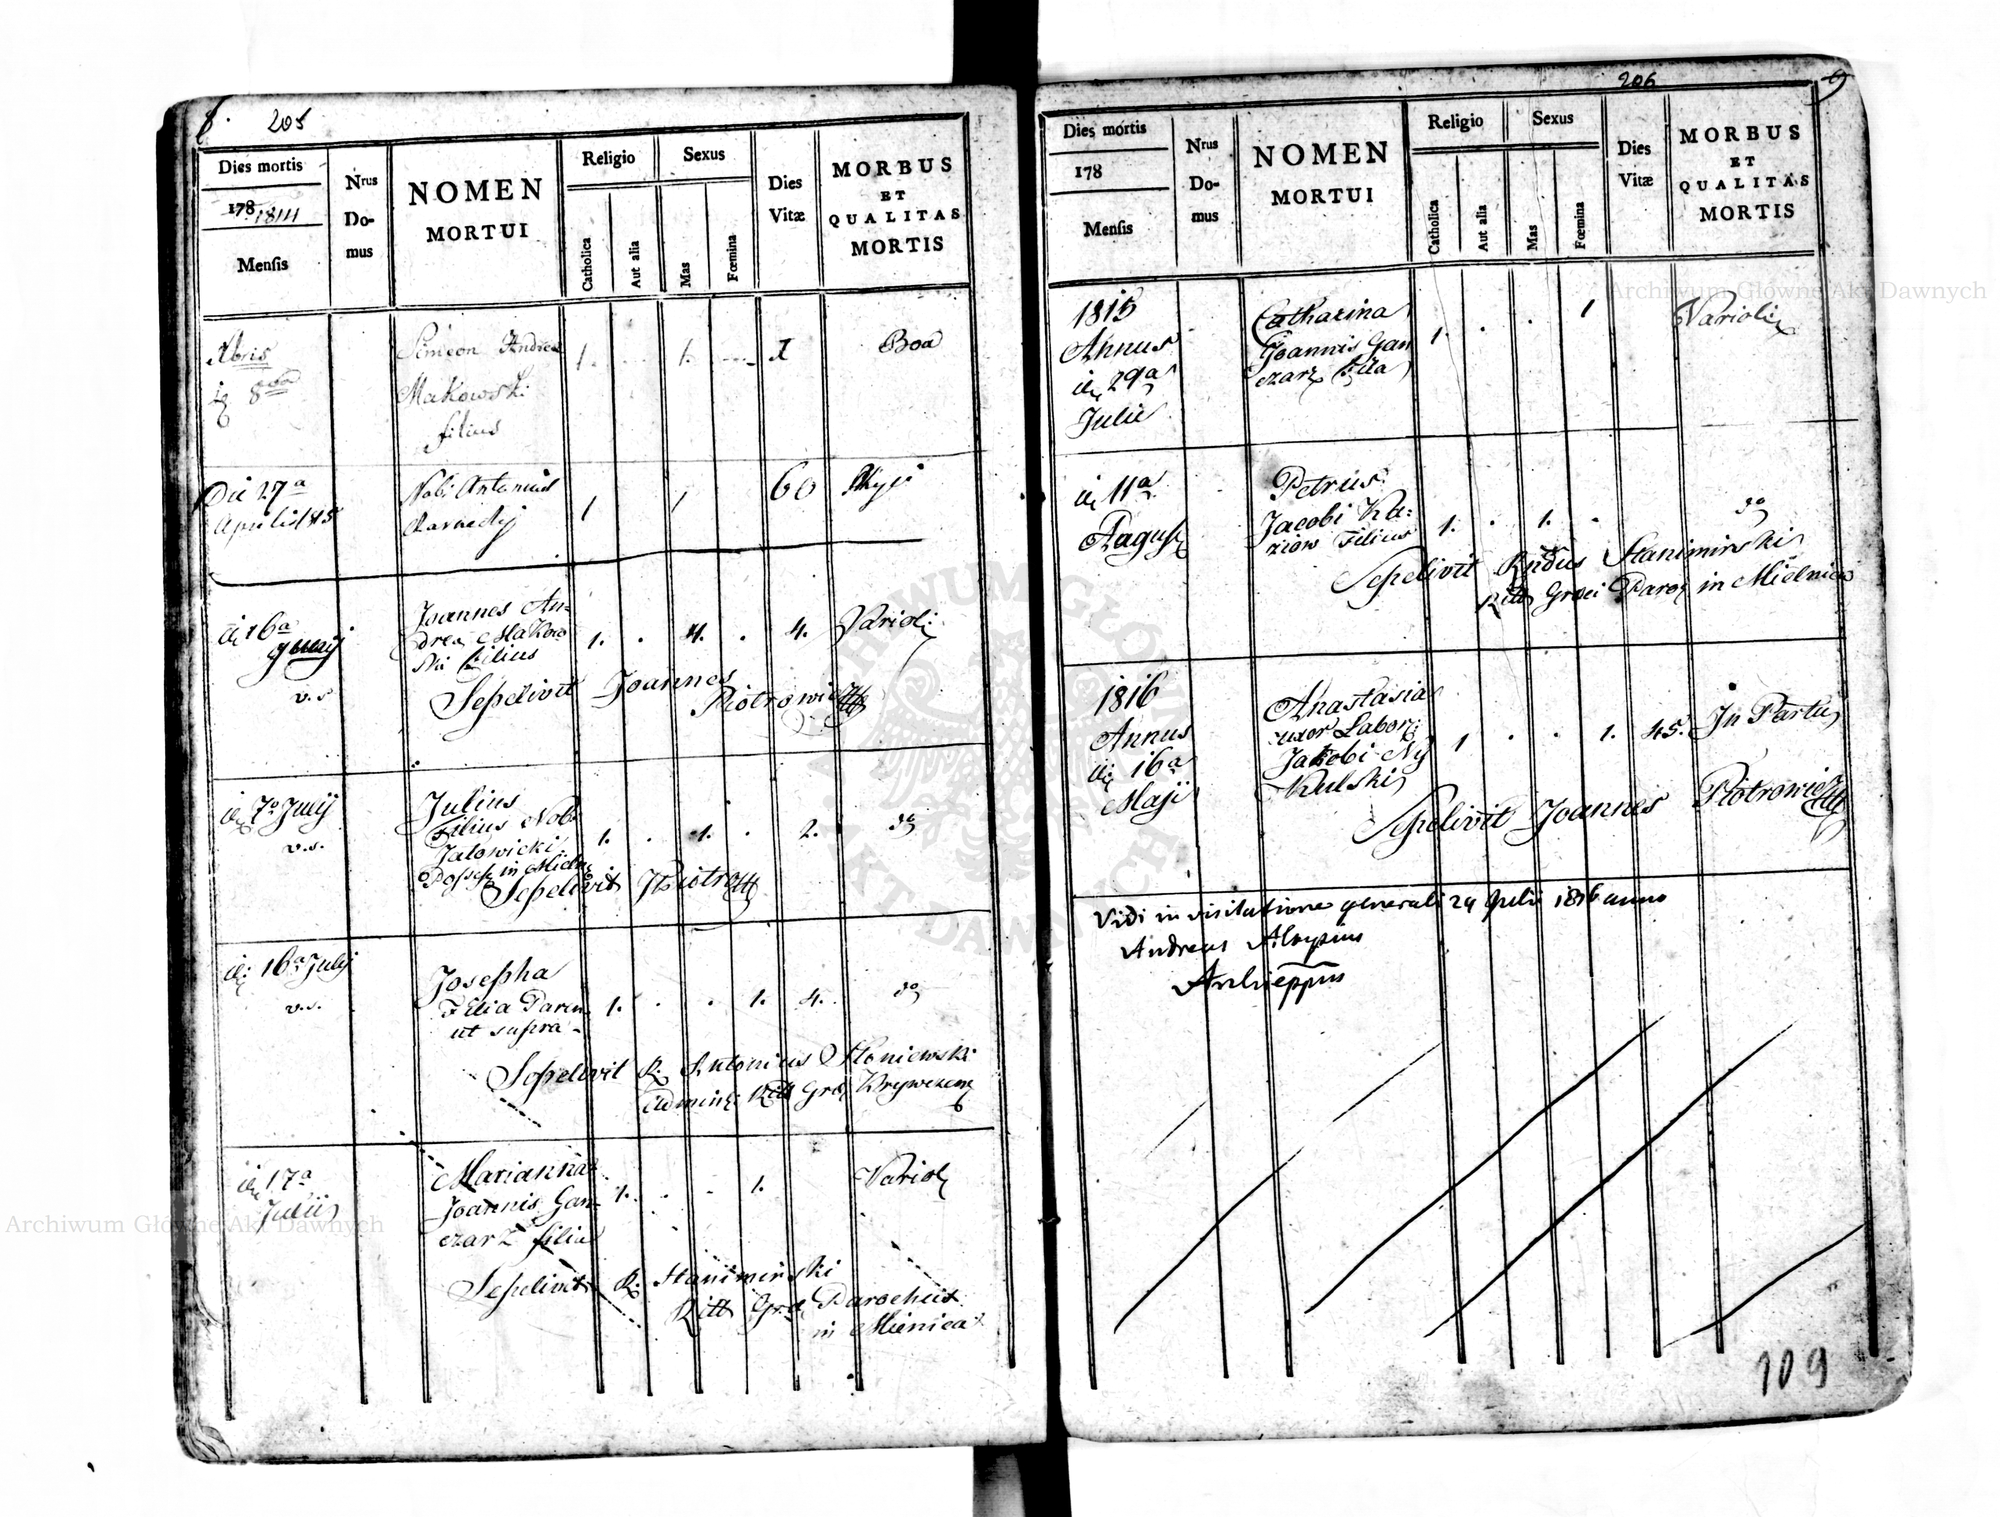 8. 205
Dies mortis
178 1814
Menſis
Nrus
Do-
mus
NOMEN
MORTUI
Religio
Catholica
Aut alia
Sexus
Mas
Fœmina
Dies
Vitæ
MORBUS
ET
QUALITAS
MORTIS
Xbris
8va
Simeon Andrea
Makowski
filius
1. 1. 1 Boa
Die 27a
Aprilis 1815
Nob: Antonius
1 1 60
die 16a
v. s.
Joannes An-
drea Makow
ski Filius
1. . 1. . 4. Variol:
Sepelivit Joannes
Piotrowicz
die 7a Junij
v. s.
Julius
Filius Nob:
Jalowicki
Possess: in Mieln:
1. . 1. . 2. do
Sepelivit JPiotro
die 16a July
v. s.
Josepha
Filia Paren
ut supra -
1. . . 1. 4. do
Sepelivit R. Antonius Sloniewski
Admin: Ritt Grae Krywcen
die 17a
Julii
Marianna
Joannis Gan-
czarz filia
1. . . 1. Variol
Sepelivit R. Stanimirski
Ritt Grae Parochus
in Mienica
206 9
Dies mortis
178
Menſis
Nrus
Do-
mus
NOMEN
MORTUI
Religio
Catholica
Aut alia
Sexus
Mas
Fœmina
Dies
Vitæ
MORBUS
ET
QUALITAS
MORTIS
1815
Annus
die 29a
Julii
Catharina
Joannis Gan
czarz filia
1. . . 1 Varioli
die 11a
August
Petrus
Jacobi Ka:
ziow Filius
1. . 1. . do
Sepelivit Rndus Stanimirski
Ritt Graei Paroch in Mielnica
1816
Annus
die 16a
Maji
Anastasia
uxor Labor:
Jakobi Ny
kulski
1 . . 1. 45. In Partu
Sepelivit Joannes Piotrowicz
Vidi in visitatione generali 24 Julii 1816 anno
Andreas Aloysius
Archieppus
109
Archiwum Główne Akt Dawnych
Archiwum Główne Akt Dawnych
ARCHIWUM GŁÓWNE
AKT DAWNYCH